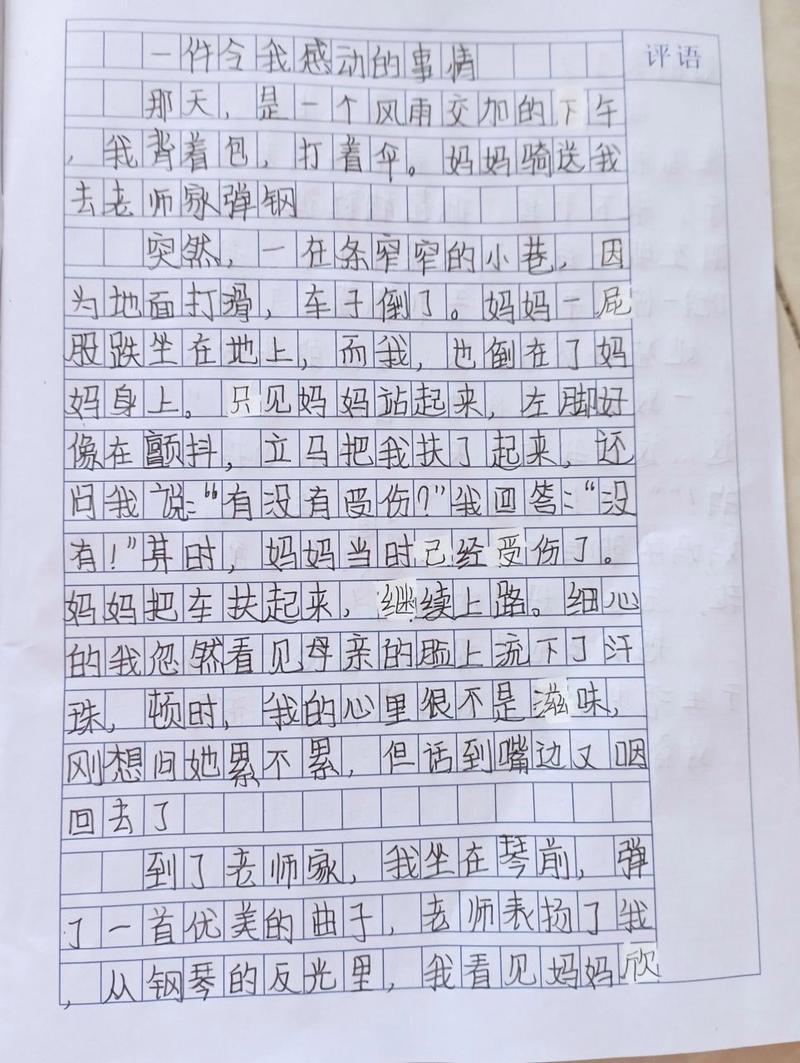 评语
一件令我感动的事情
那天，是一个风雨交加的下午
，我背着包，打着伞。妈妈骑送我
去老师家弹钢
突然，一在条窄窄的小巷，因
为地面打滑，车子倒了。妈妈一屁
股跌坐在地上，而我，也倒在了妈
妈身上。只见妈妈站起来，左脚好
像在颤抖，立马把我扶了起来，还
问我说：“有没有受伤？”我回答：“没
有！”其时，妈妈当时已经受伤了。
妈妈把车扶起来，继续上路。细心
的我忽然看见母亲的脸上流下了汗
珠，顿时，我的心里很不是滋味，
刚想问她累不累，但话到嘴边又咽
回去了
到了老师家，我坐在琴前，弹
了一首优美的曲子，老师表扬了我
，从钢琴的反光里，我看见妈妈欣